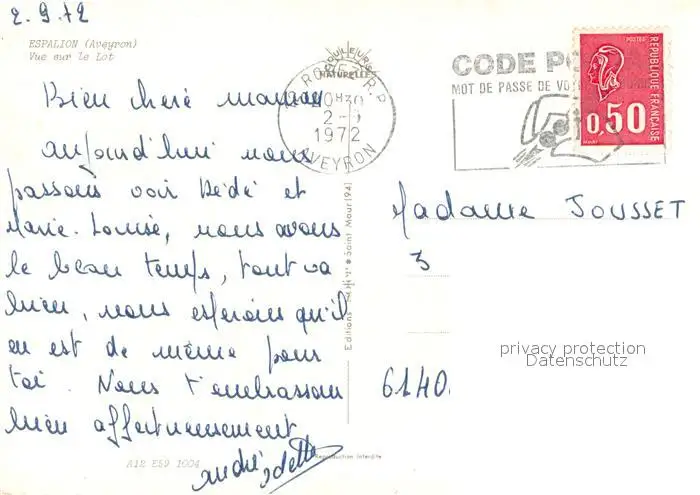 2.9.72
ESPALION (Aveyron)
Vue sur le Lot
Bien cheré maman
aujourd'hui nous
passons voir Dédé et
Marie-Louise, nous avons
le beau temps, tout va
bien, nous espérons qu'il
en est de même pour
toi. Nous t'embrassons
bien affectueusement
André Odette
A12 E59 1004
COULEURS
NATURELLES
RODEZ R.P
10H30
2-9
1972
AVEYRON
Saint Maur (94)
Editions
Reproduction Interdite
CODE PO
MOT DE PASSE DE VO
POSTES
REPUBLIQUE FRANÇAISE
0,50
Madame JOUSSET
3
6140
privacy protection
Datenschutz